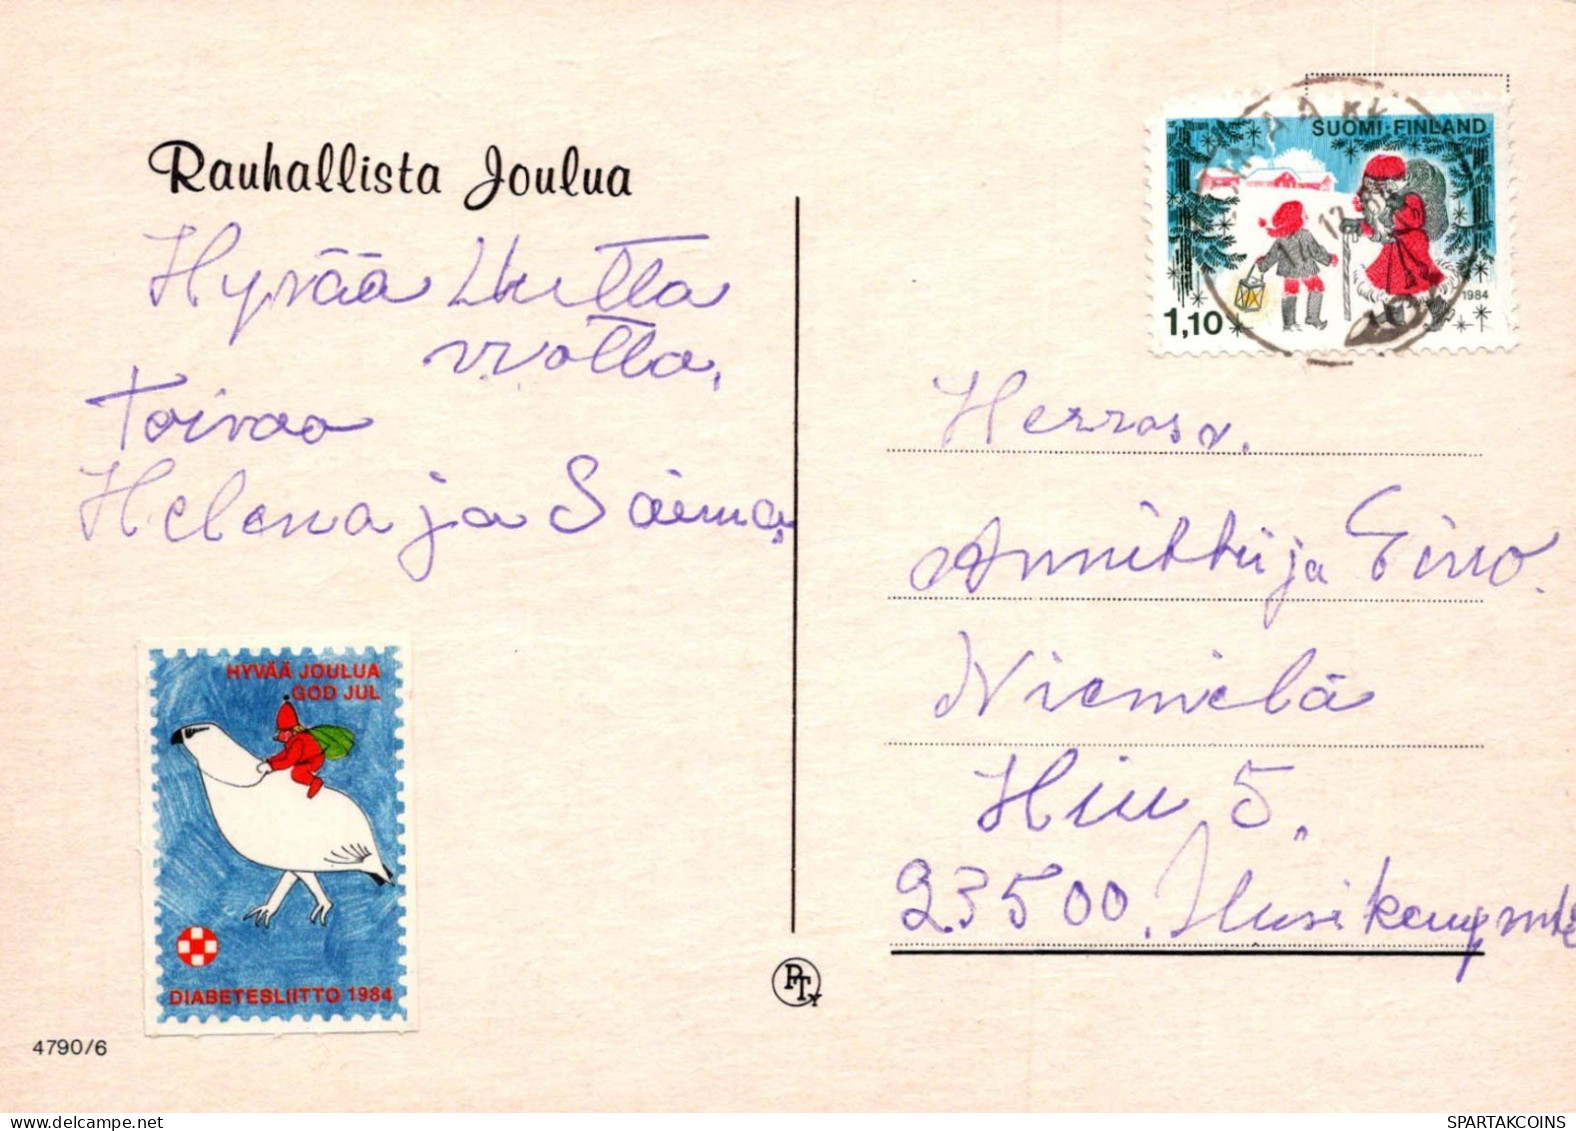 Rauhallista Joulua
Hyvää Uutta
vuotta,
Toivaa
Helena ja Saima
HYVÄÄ JOULUA
GOD JUL
DIABETESLIITTO 1984
4790/6
PTY
SUOMI-FINLAND
1984
1,10
Herrasv.
Annikki ja Eino.
Niemelä
Hiu 5.
23500. Uusikaupunki
www.delcampe.net
SPARTAKCOINS